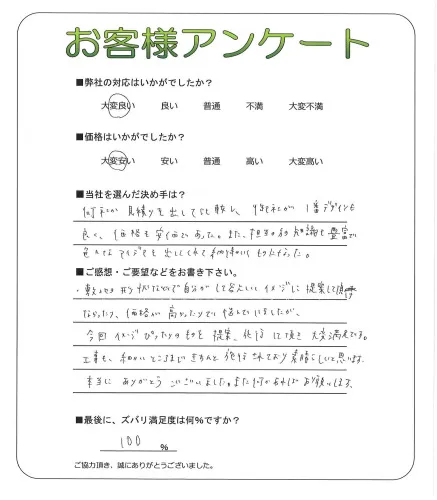 お客様アンケート
■弊社の対応はいかがでしたか?
大変良い 良い 普通 不満 大変不満
■価格はいかがでしたか?
大変安い 安い 普通 高い 大変高い
■当社を選んだ決め手は?
何社か見積りを出してもらい比較し、御社が1番デザインも
良く、価格も安価であった。また、担当の方の知識も豊富で
色々なアイデアを出してくれて
■ご感想・ご要望などをお書き下さい。
・敷地の形状などで自分がしてほしいイメージに提案して頂け
なかったり、価格が高かったりで悩んでいましたが、
今回イメージぴったりのものを提案、施行して頂き大変満足です。
工事も、細かいところまできちんと施行されており素晴らしいと思います。
本当にありがとうございました。また何かあればお願いします。
■最後に、ズバリ満足度は何%ですか?
100 %
ご協力頂き、誠にありがとうございました。